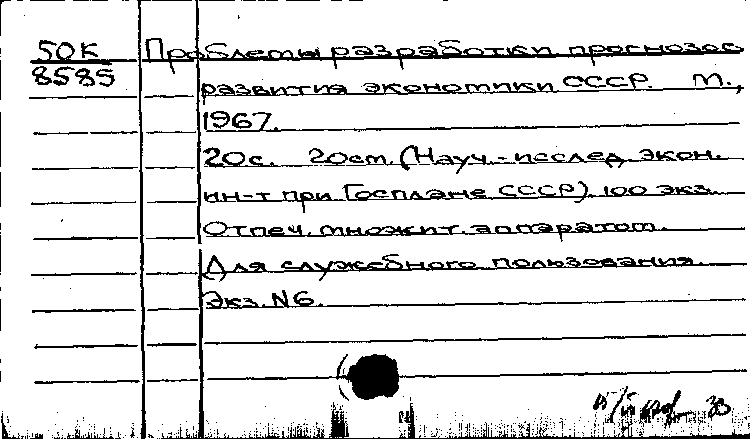 50К Проблемы разработки прогнозов
8585 развития экономики СССР. М.,
1967.
20с. 20ст. (Науч.-исслед. экон.
ин-т при Госплане СССР). 100 экз.
Отпеч. множит. аппаратом.
Для служебного пользования.
Экз. N6.